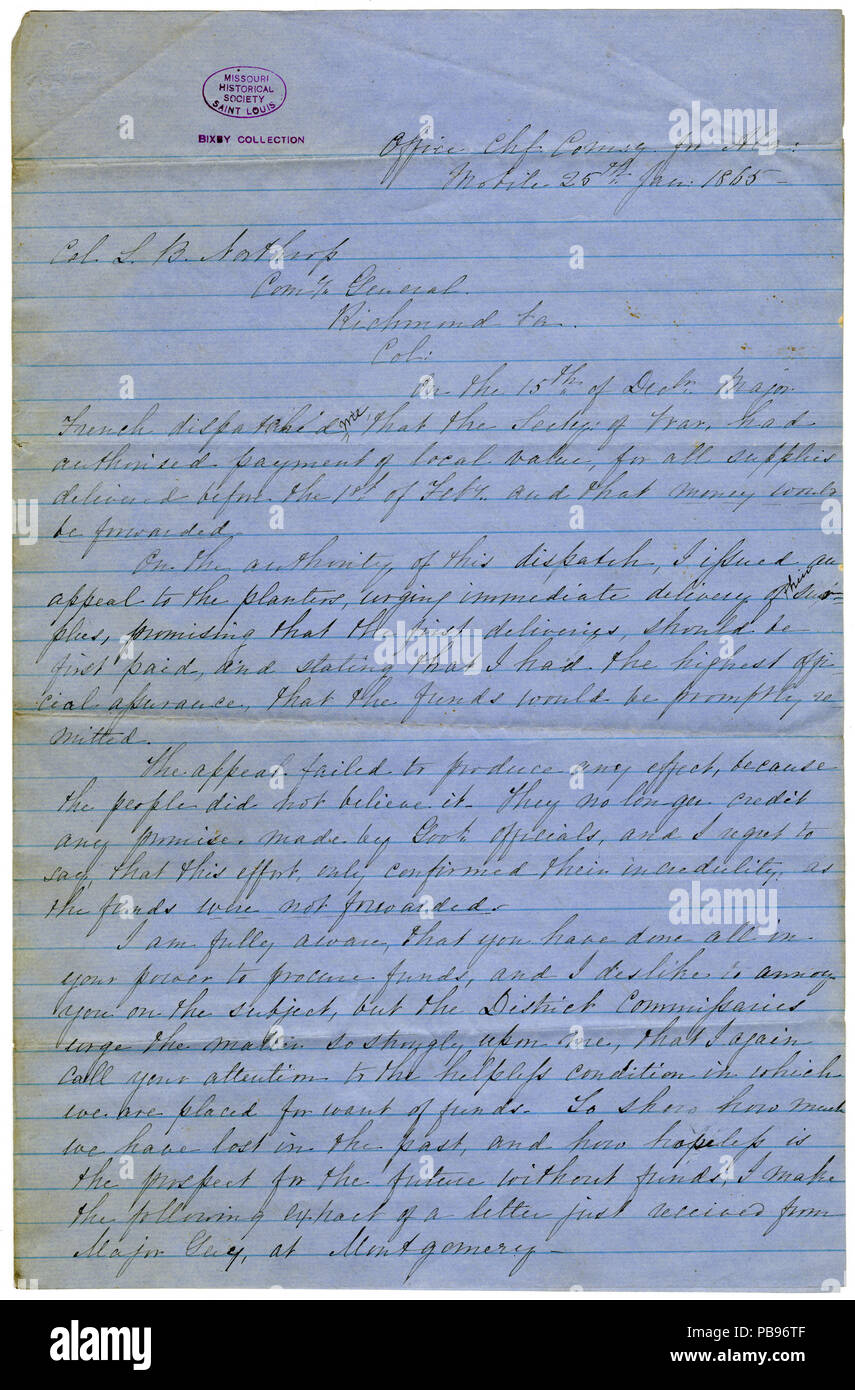 MISSOURI
HISTORICAL
SOCIETY
SAINT LOUIS
BIXBY COLLECTION
Office Chf. Comsy. for Ala:
Mobile 25th. Jan. 1865 —
Col. L. B. Northrop
Comy. General.
Richmond Va.
Col:
On the 15th. of Decbr. Major
French dispatch'd me that the Secty. of War, had
authorised payment of local value, for all supplies
delivered before the 1st of Feby. and that money would
be forwarded.
On the authority of this dispatch, I issued an
appeal to the planters, urging immediate delivery of their sur-
plus, promising that the first deliveries, should be
first paid, and stating that I had the highest offi-
cial assurance, that the funds would be promptly re
mitted.
The appeal failed to produce any effect, because
the people did not believe it. They no longer credit
any promise made by Govt. officials, and I regret to
say, that this effort, only confirmed their incredulity, as
the funds were not forwarded.
I am fully aware, that you have done all in
your power to procure funds, and I dislike to annoy
you on the subject, but the District Commissaries
urge the matter so strongly upon me, that I again
call your attention to the helpless condition in which
we are placed for want of funds. To show how much
we have lost in the past, and how hopeless is
the prospect for the future without funds, I make
the following extract of a letter just received from
Major Guy, at Montgomery —
alamy
Image ID: PB96TF
www.alamy.com